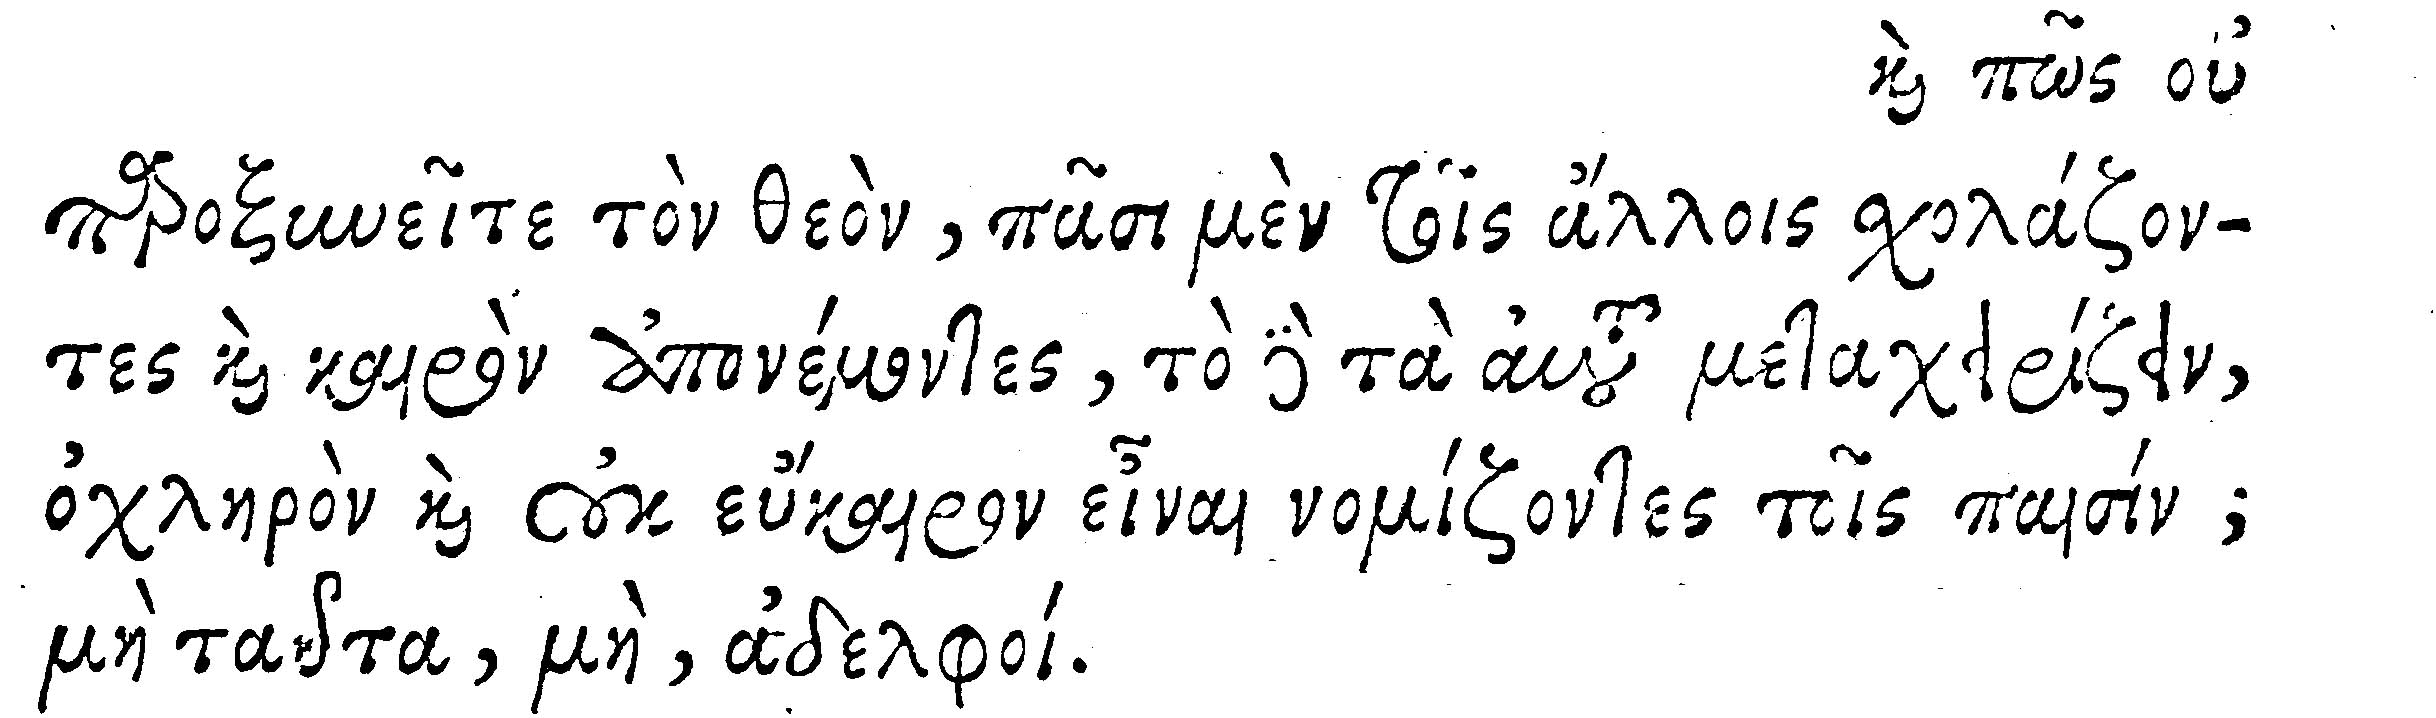 καὶ πῶς οὐ
παροξυνεῖτε τὸν θεὸν, πᾶσι μὲν τοῖς ἄλλοις σχολάζον-
τες καὶ καιρὸν ἀπονέμοντες, τὸ δὲ τὰ αὐτοῦ μεταχειρίζειν,
ὀχληρὸν καὶ οὐκ εὔκαιρον εἶναι νομίζοντες τοῖς παισίν;
μὴ ταῦτα, μὴ, ἀδελφοί.